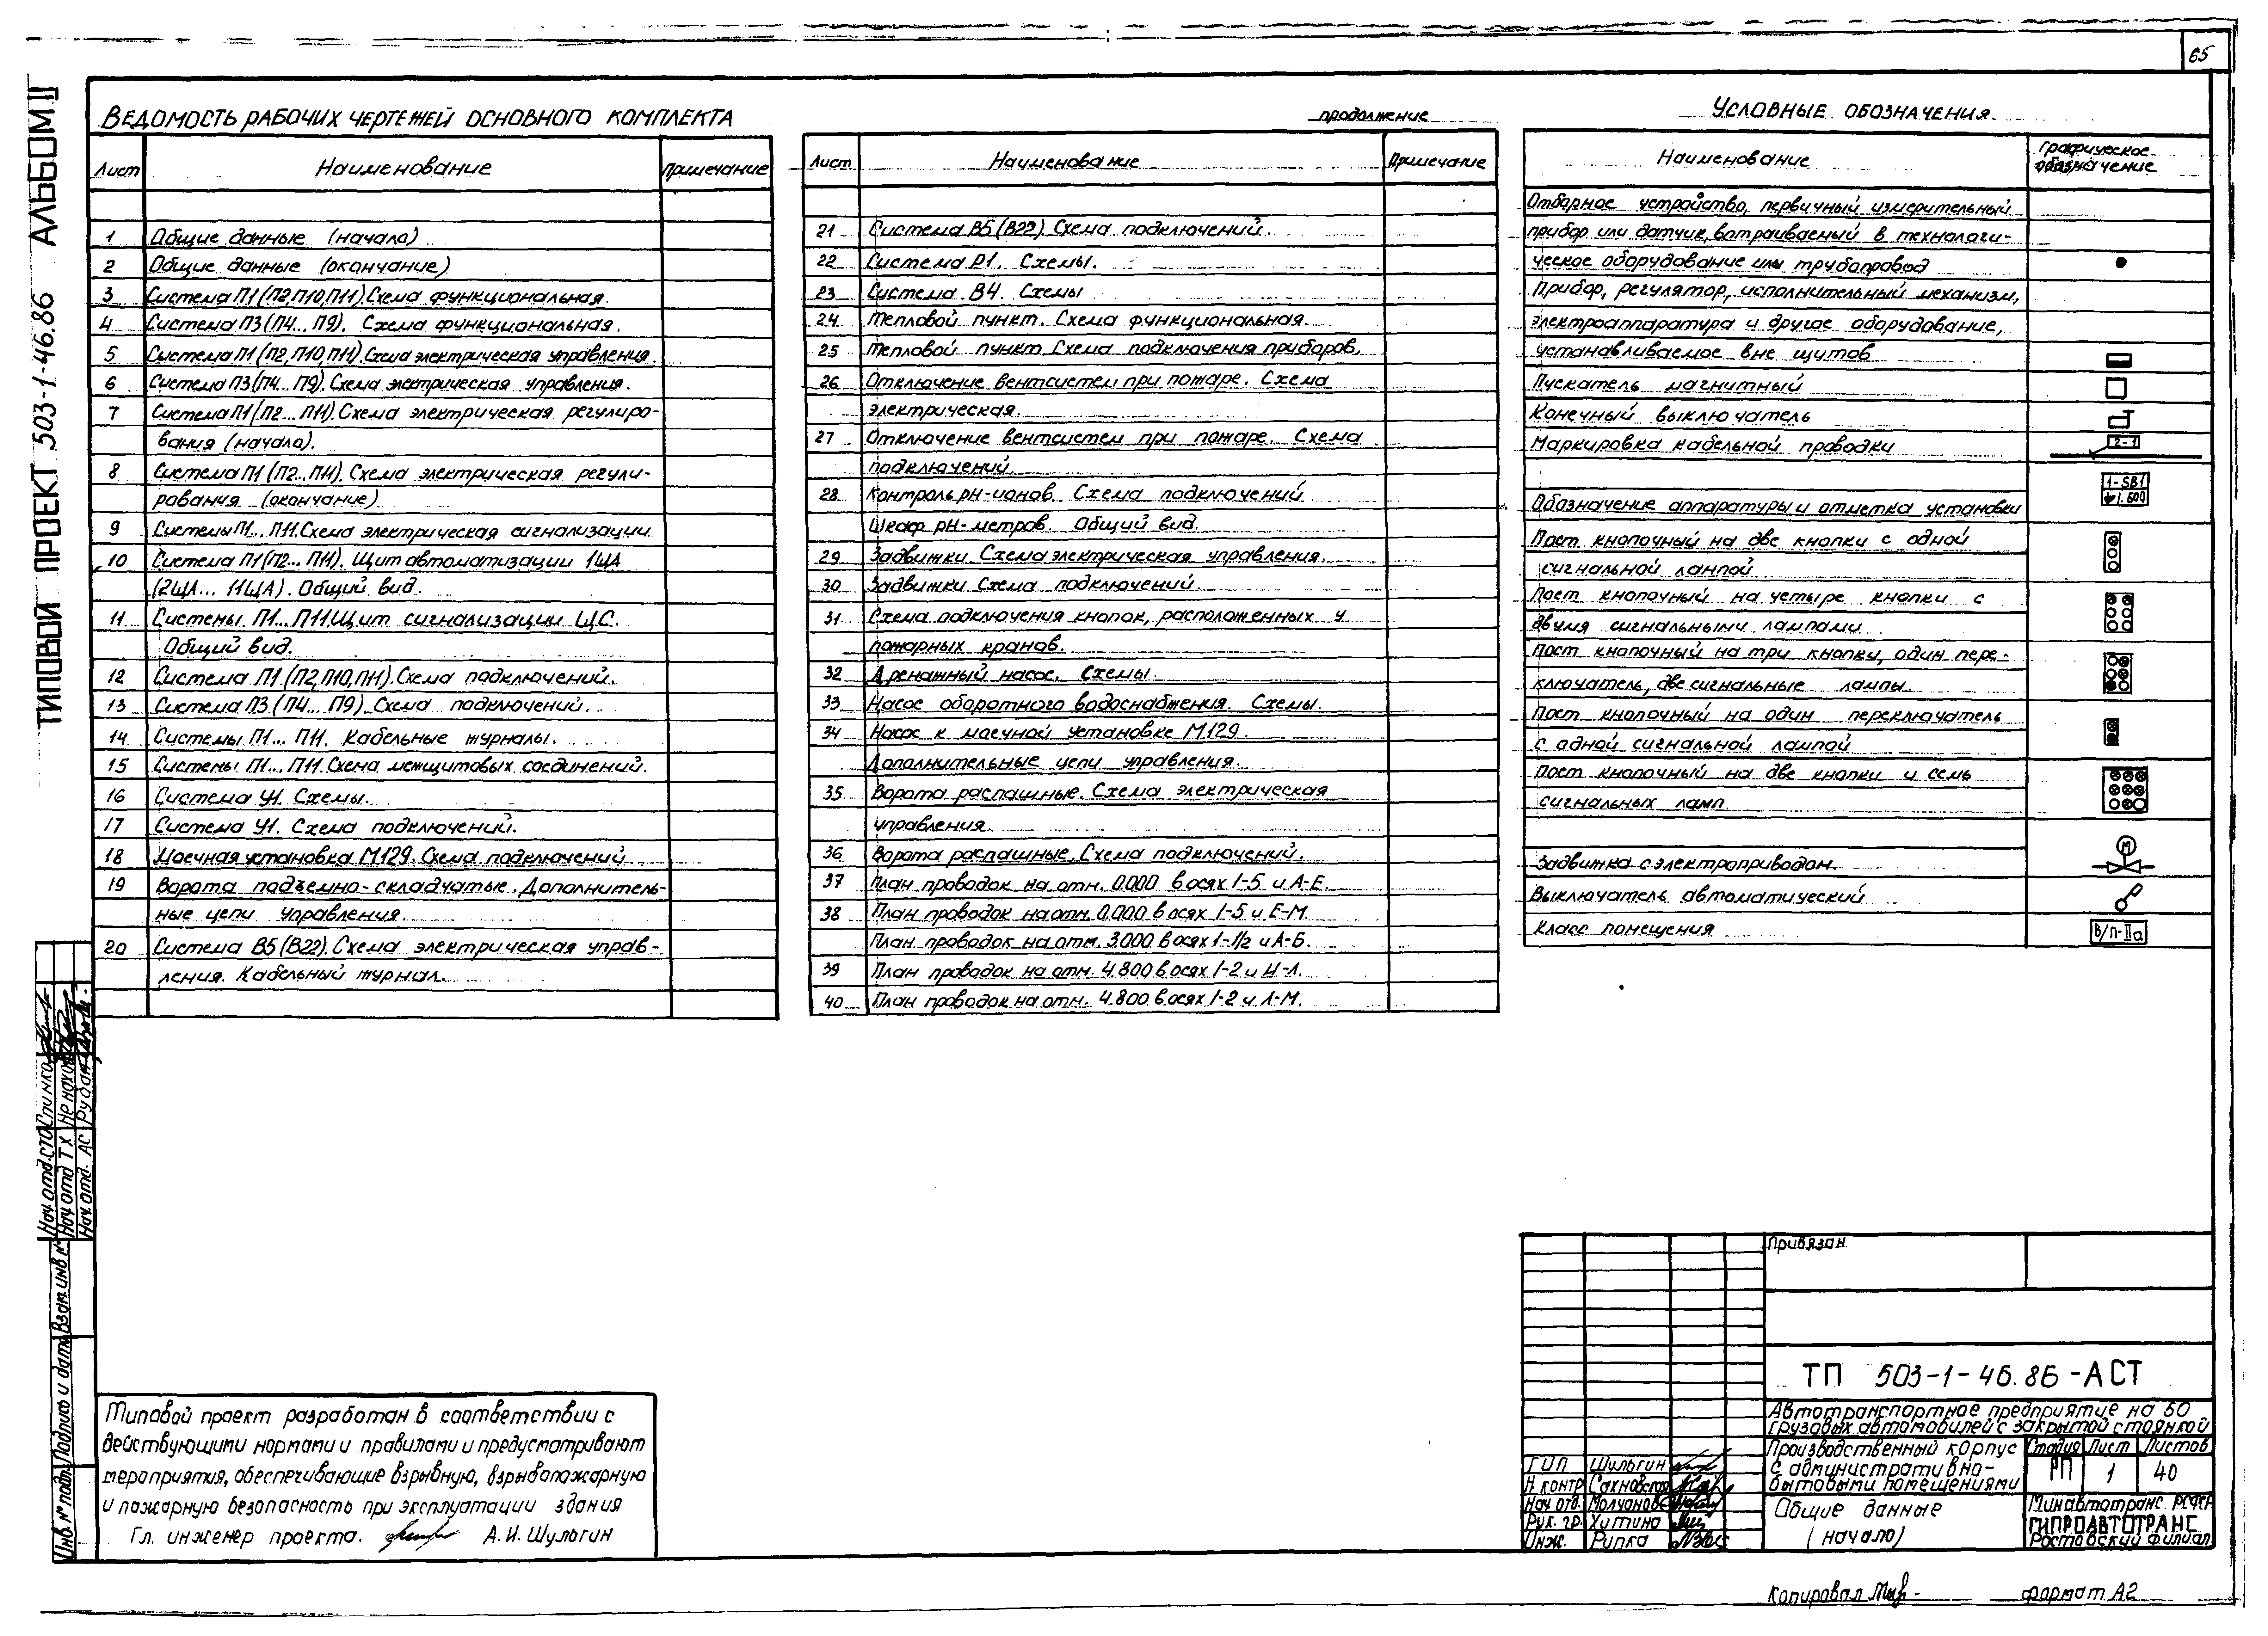 65
ТИПОВОЙ ПРОЕКТ 503-1-46.86 АЛЬБОМ II
ВЕДОМОСТЬ РАБОЧИХ ЧЕРТЕЖЕЙ ОСНОВНОГО КОМПЛЕКТА
Лист Наименование Примечание
1 Общие данные (начало)
2 Общие данные (окончание)
3 Система П1 (П2, П10, П11). Схема функциональная.
4 Система П3 (П4... П9). Схема функциональная.
5 Система П1 (П2, П10, П11). Схема электрическая управления.
6 Система П3 (П4... П9). Схема электрическая управления.
7 Система П1 (П2... П11). Схема электрическая регулиро-
вания (начало).
8 Система П1 (П2... П11). Схема электрическая регули-
рования (окончание)
9 Системы П1... П11. Схема электрическая сигнализации
10 Система П1 (П2... П11). Щит автоматизации 1ЩА
(2ЩА... 11ЩА). Общий вид.
11 Системы П1... П11. Щит сигнализации ЩС.
Общий вид.
12 Система П1. (П2, П10, П11). Схема подключений.
13 Система П3. (П4... П9). Схема подключений.
14 Системы П1... П11. Кабельные журналы.
15 Системы П1... П11. Схема межщитовых соединений.
16 Система У1. Схемы.
17 Система У1. Схема подключений.
18 Моечная установка М129. Схема подключений
19 Ворота подъемно-складчатые. Дополнитель-
ные цепи управления.
20 Система В5 (В22). Схема электрическая управ-
ления. Кабельный журнал.
продолжение
Лист Наименование Примечание
21 Система В5 (В22). Схема подключений.
22 Система Р1. Схемы.
23 Система В4. Схемы
24 Тепловой пункт. Схема функциональная.
25 Тепловой пункт. Схема подключения приборов.
26 Отключение вентсистем при пожаре. Схема
электрическая.
27 Отключение вентсистем при пожаре. Схема
подключений.
28 Контроль рН-ионов. Схема подключений
Шкаф рН-метров. Общий вид.
29 Задвижки. Схема электрическая управления.
30 Задвижки. Схема подключений.
31 Схема подключения кнопок, расположенных у
пожарных кранов.
32 Дренажный насос. Схемы.
33 Насос оборотного водоснабжения. Схемы.
34 Насос к моечной установке М129.
Дополнительные цепи управления.
35 Ворота распашные. Схема электрическая
управления.
36 Ворота распашные. Схема подключений.
37 План проводок на отм. 0.000 в осях 1-5 и А-Е.
38 План проводок на отм. 0.000 в осях 1-5 и Е-М.
План проводок на отм. 3.000 в осях 1-1/2 и А-Б.
39 План проводок на отм. 4.800 в осях 1-2 и И-Л.
40 План проводок на отм. 4.800 в осях 1-2 и Л-М.
УСЛОВНЫЕ ОБОЗНАЧЕНИЯ.
Наименование Графическое
обозначение
Отборное устройство, первичный измерительный
прибор или датчик, встраиваемый в технологи-
ческое оборудование или трубопровод
Прибор, регулятор, исполнительный механизм,
электроаппаратура и другое оборудование,
устанавливаемое вне щитов
Пускатель магнитный
Конечный выключатель
Маркировка кабельной проводки 2-1
1-SB1
Обозначение аппаратуры и отметка установки 1.600
Пост кнопочный на две кнопки с одной
сигнальной лампой
Пост кнопочный на четыре кнопки с
двумя сигнальными лампами
Пост кнопочный на три кнопки, один пере-
ключатель, две сигнальные лампы.
Пост кнопочный на один переключатель
с одной сигнальной лампой
Пост кнопочный на две кнопки и семь
сигнальных ламп.
М
Задвижка с электроприводом.
Выключатель автоматический
Класс помещения В/П-IIа
Нач. отд. СТО Спинко
Нач. отд ТХ
Нач. отд. АС
Инв. № подл. Подпись и дата Взам. инв. №
Типовой проект разработан в соответствии с
действующими нормами и правилами и предусматривают
мероприятия, обеспечивающие взрывную, взрывопожарную
и пожарную безопасность при эксплуатации здания
Гл. инженер проекта. А.И. Шульгин
Привязан
ТП 503-1-46.86-АСТ
Автотранспортное предприятие на 50
грузовых автомобилей с закрытой стоянкой
Производственный корпус
с административно-
бытовыми помещениями
Стадия Лист Листов
РП 1 40
ГИП Шульгин
Н контр Сахновская
Нач. отд. Молчанов
Рук. гр. Хитина
Инж. Рипка
Общие данные
(начало)
Минавтотранс. РСФСР
ГИПРОАВТОТРАНС
Ростовский филиал
Копировал формат А2